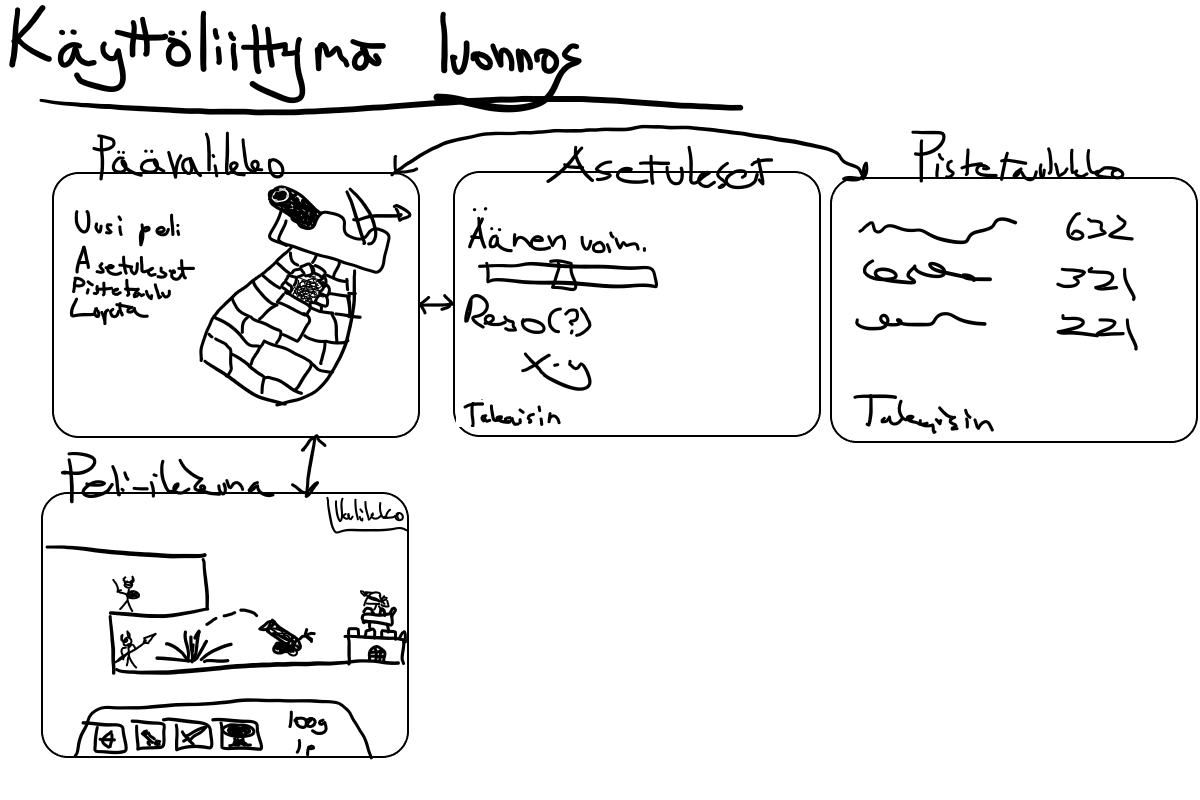 Käyttöliittymä luonnos
Päävalikko
Uusi peli
Asetukset
Pistetaulu
Lopeta
Asetukset
Äänen voim.
Reso(?)
x·y
Takaisin
Pistetaulukko
632
321
221
Takaisin
Peli-ikkuna
Valikko
100g
1p